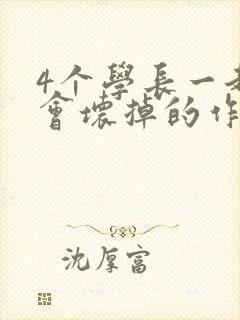 4个學長一
會壞掉的作
沈厚富